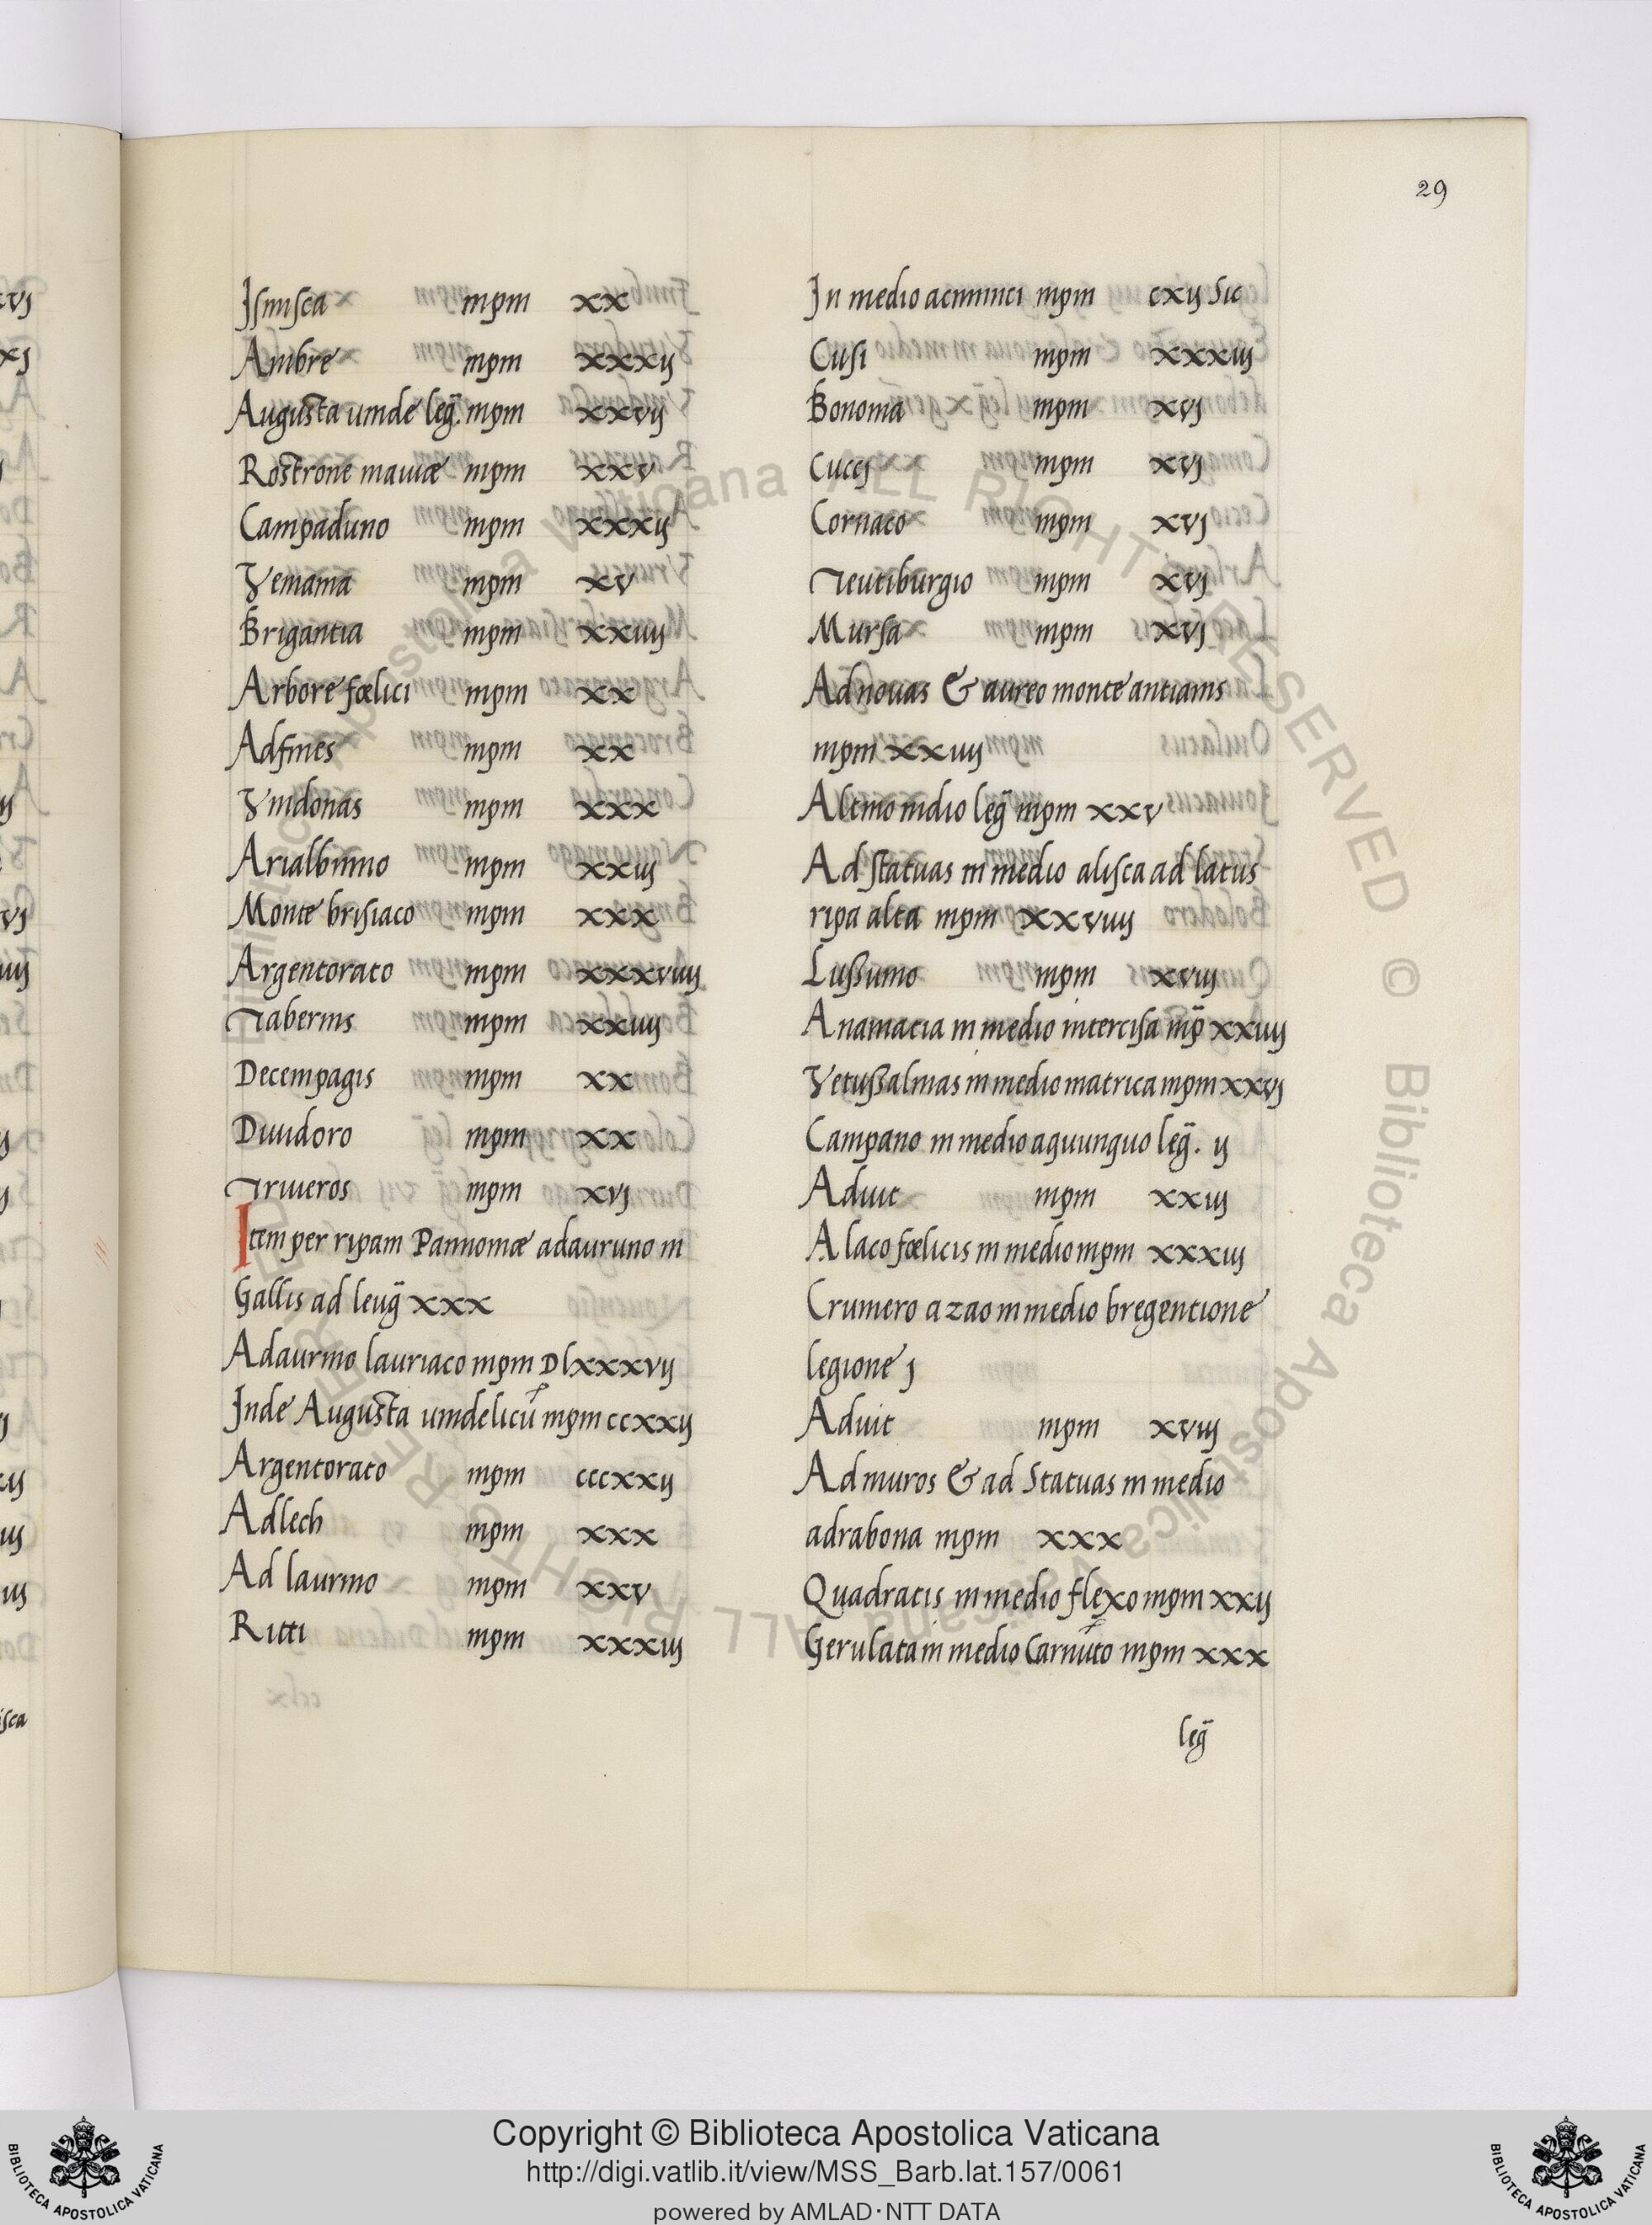 29
Isinisca mpm xx
Ambre mpm xxxij
Augusta uinde leg̃. mpm xxvij
Rostrone mauiæ mpm xxv
Campaduno mpm xxxij
Vemania mpm xv
Brigantia mpm xxiiij
Arbore fœlici mpm xx
Adfines mpm xx
Vindonas mpm xxx
Arialbinno mpm xxiij
Monte brisiaco mpm xxx
Argentorato mpm xxxviiij
Tabernis mpm xxiiij
Decempagis mpm xx
Diuidoro mpm xx
Triueros mpm xvj
Item per ripam Pannoniæ adauruno in
Gallis ad leug̃ xxx
Adaurino lauriaco mpm Dlxxxvij
Inde Augusta uindelicũ mpm ccxxij
Argentorato mpm cccxxij
Adlech mpm xxx
Ad laurino mpm xxv
Ritti mpm xxxiij
In medio aciminci mpm cxij Sic
Cusi mpm xxxiij
Bononia mpm xvj
Cuccj mpm xvj
Cornaco mpm xvj
Teutiburgio mpm xvj
Mursa mpm xvj
Ad nouas & aureo monte antianis
mpm xxiiij
Altino indio leg̃ mpm xxv
Ad statuas in medio alisca ad latus
ripa alta mpm xxviiij
Lussumo mpm xviij
Anamatia in medio intercisa mp̃ xxiiij
Vetussalmas in medio matrica mpm xxvj
Campano in medio aquunquo leg̃. ij
Aduit mpm xxiij
A laco fœlicis in medio mpm xxxiij
Crumero azao in medio bregentione
legione j
Aduit mpm xviij
Ad muros & ad Statuas in medio
adrabona mpm xxx
Quadratis in medio flexo mpm xxij
Gerulata in medio Carnuto mpm xxx
leg̃
Copyright © Biblioteca Apostolica Vaticana
http://digi.vatlib.it/view/MSS_Barb.lat.157/0061
powered by AMLAD·NTT DATA
BIBLIOTECA APOSTOLICA VATICANA
BIBLIOTECA APOSTOLICA VATICANA